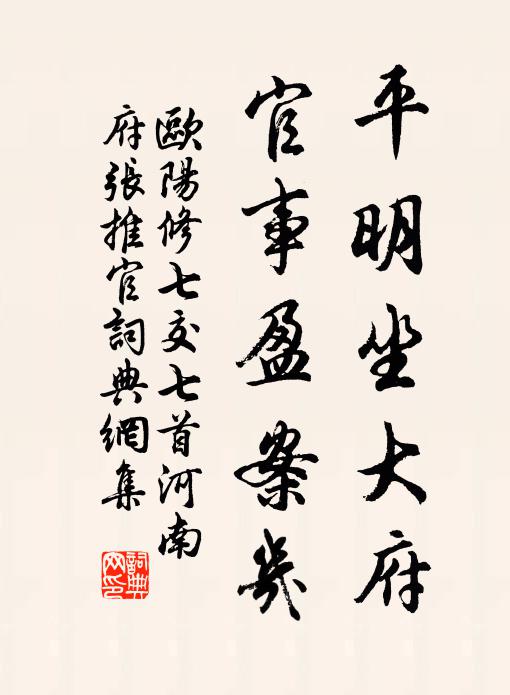 平明坐大府
官事盈案几
歐陽修七交七首河南
府張推官詞典網集
詞典
网印